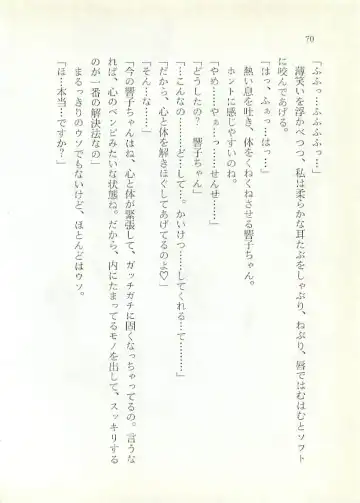 70
「ふふっ…ふふふふっ…」
薄笑いを浮かべつつ、私は柔らかな耳たぶをしゃぶり、ねぶり、唇ではむはむとソフト
に咬んであげる。
「はっ、ふぁっ…はっ…」
熱い息を吐き、体をくねくねさせる響子ちゃん。
ホントに感じやすいのね。
「やめ……やぁ…っ……せんせ……」
「どうしたの？　響子ちゃん」
「…こんなの………どーして……。かいけつ……してくれる…て………」
「だから、心と体を解きほぐしてあげてるのよ♡」
「そん…な……」
「今の響子ちゃんはね、心と体が緊張して、ガッチガチに固くなっちゃってるの。言うな
れば、心のベンピみたいな状態ね。だから、内にたまってるモノを出して、スッキリする
のが一番の解決法なの」
まるっきりのウソでもないけど、ほとんどはウソ。
「ほ…本当…ですか？」